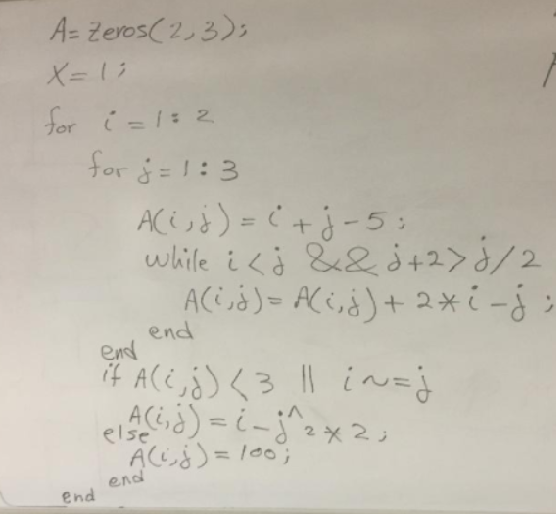 A=zeros(2,3);
X=1;
for i=1:2
for j=1:3
A(i,j)=i+j-5;
while i<j && j+2>j/2
A(i,j)=A(i,j)+2*i-j;
end
end
if A(i,j)<3 || i~=j
A(i,j)=i-j^2*2;
else
A(i,j)=100;
end
end